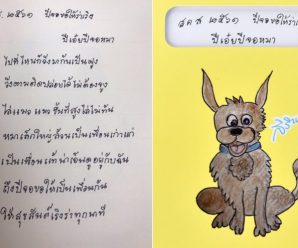 ส. ๒๕๖๑ ปีจอขอให้ร่าเริง
ปีเอ๋ยปีจอหมา
ไปที่ไหนก็วิ่งมากันเป็นฝูง
วิ่งตามติดปล่อยได้ไม่ต้องจูง
ไล่แมวแมวขึ้นที่สูงไล่ไม่ทัน
หมาเด็กใหญ่ล้วนเป็นเพื่อนเก่าแก่
เป็นเพื่อนแท้น่าเอ็นดูอยู่กับฉัน
ถึงปีจอขอให้เป็นเพื่อนกัน
ให้สุขสันต์เริงร่าทุกนาที
ส ค ส ๒๕๖๑ ปีจอขอให้ร่าเริง
ปีเอ๋ยปีจอหมา